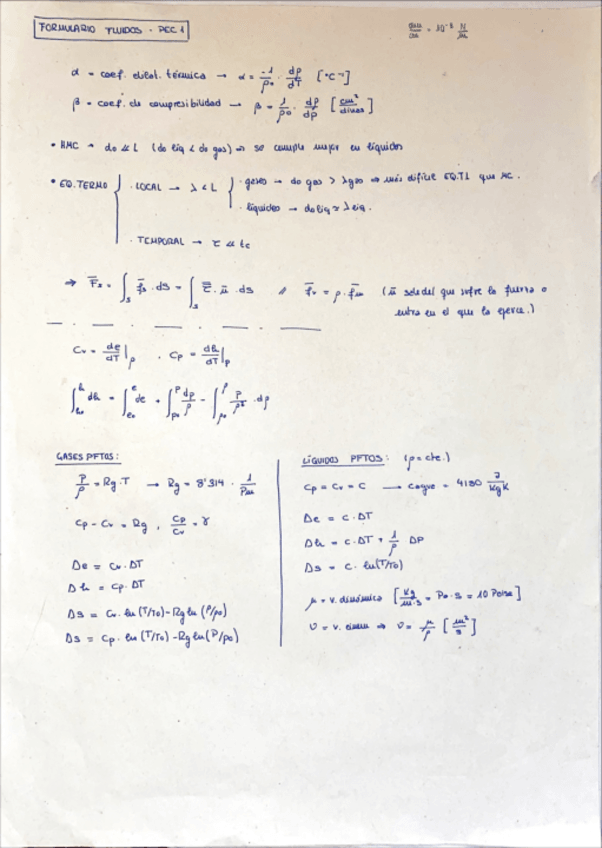 FORMULARIO FLUIDOS - PEC 1
dyn/cm = 10⁻³ N/m
α = coef. dilat. térmica → α = -1/ρ₀ · dρ/dT [°C⁻¹]
β = coef. de compresibilidad → β = 1/ρ₀ · dρ/dp [cm²/dinas]
• HMC → do ≪ L (do liq < do gas) ⇒ se cumple mejor en líquidos
• EQ. TERMO
· LOCAL → λ < L
· gases → do gas > λgas ⇒ más difícil EQ.TL que MC.
· líquidos → do liq ≈ λ liq.
· TEMPORAL → τ ≪ tc
⇒ F̄s = ∫s f̄s · ds = ∫s τ̿ · n̄ · ds // f̄v = ρ · f̄m (n̄ sale del que sufre la fuerza o
entra en el que la ejerce.)
Cv = de/dT |ρ , Cp = dh/dT |p
∫h₀^h dh = ∫e₀^e de + ∫p₀^p dp/ρ - ∫ρ₀^ρ P/ρ² · dρ
GASES PFTOS:
P/ρ = Rg·T → Rg = 8'314 · 1/Pm
Cp - Cv = Rg , Cp/Cv = γ
Δe = Cv·ΔT
Δh = Cp·ΔT
Δs = Cv·ln(T/T₀) - Rg ln(ρ/ρ₀)
Δs = Cp·ln(T/T₀) - Rg ln(P/p₀)
LÍQUIDOS PFTOS: (ρ = cte.)
Cp = Cv = C → Cagua = 4180 J/KgK
Δe = c·ΔT
Δh = c·ΔT + 1/ρ ΔP
Δs = c·ln(T/T₀)
μ = v. dinámica [Kg/m·s = Pa·s = 10 Poise]
ν = v. cinem ⇒ ν = μ/ρ [m²/s]